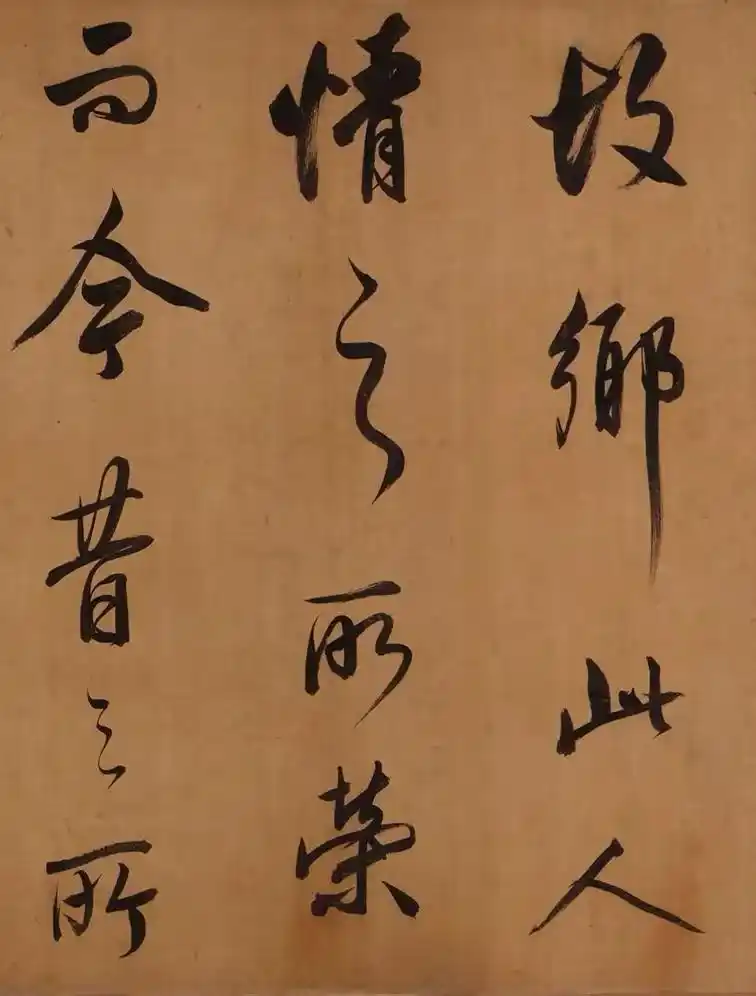 故鄉此人
情之所榮
而今昔之所